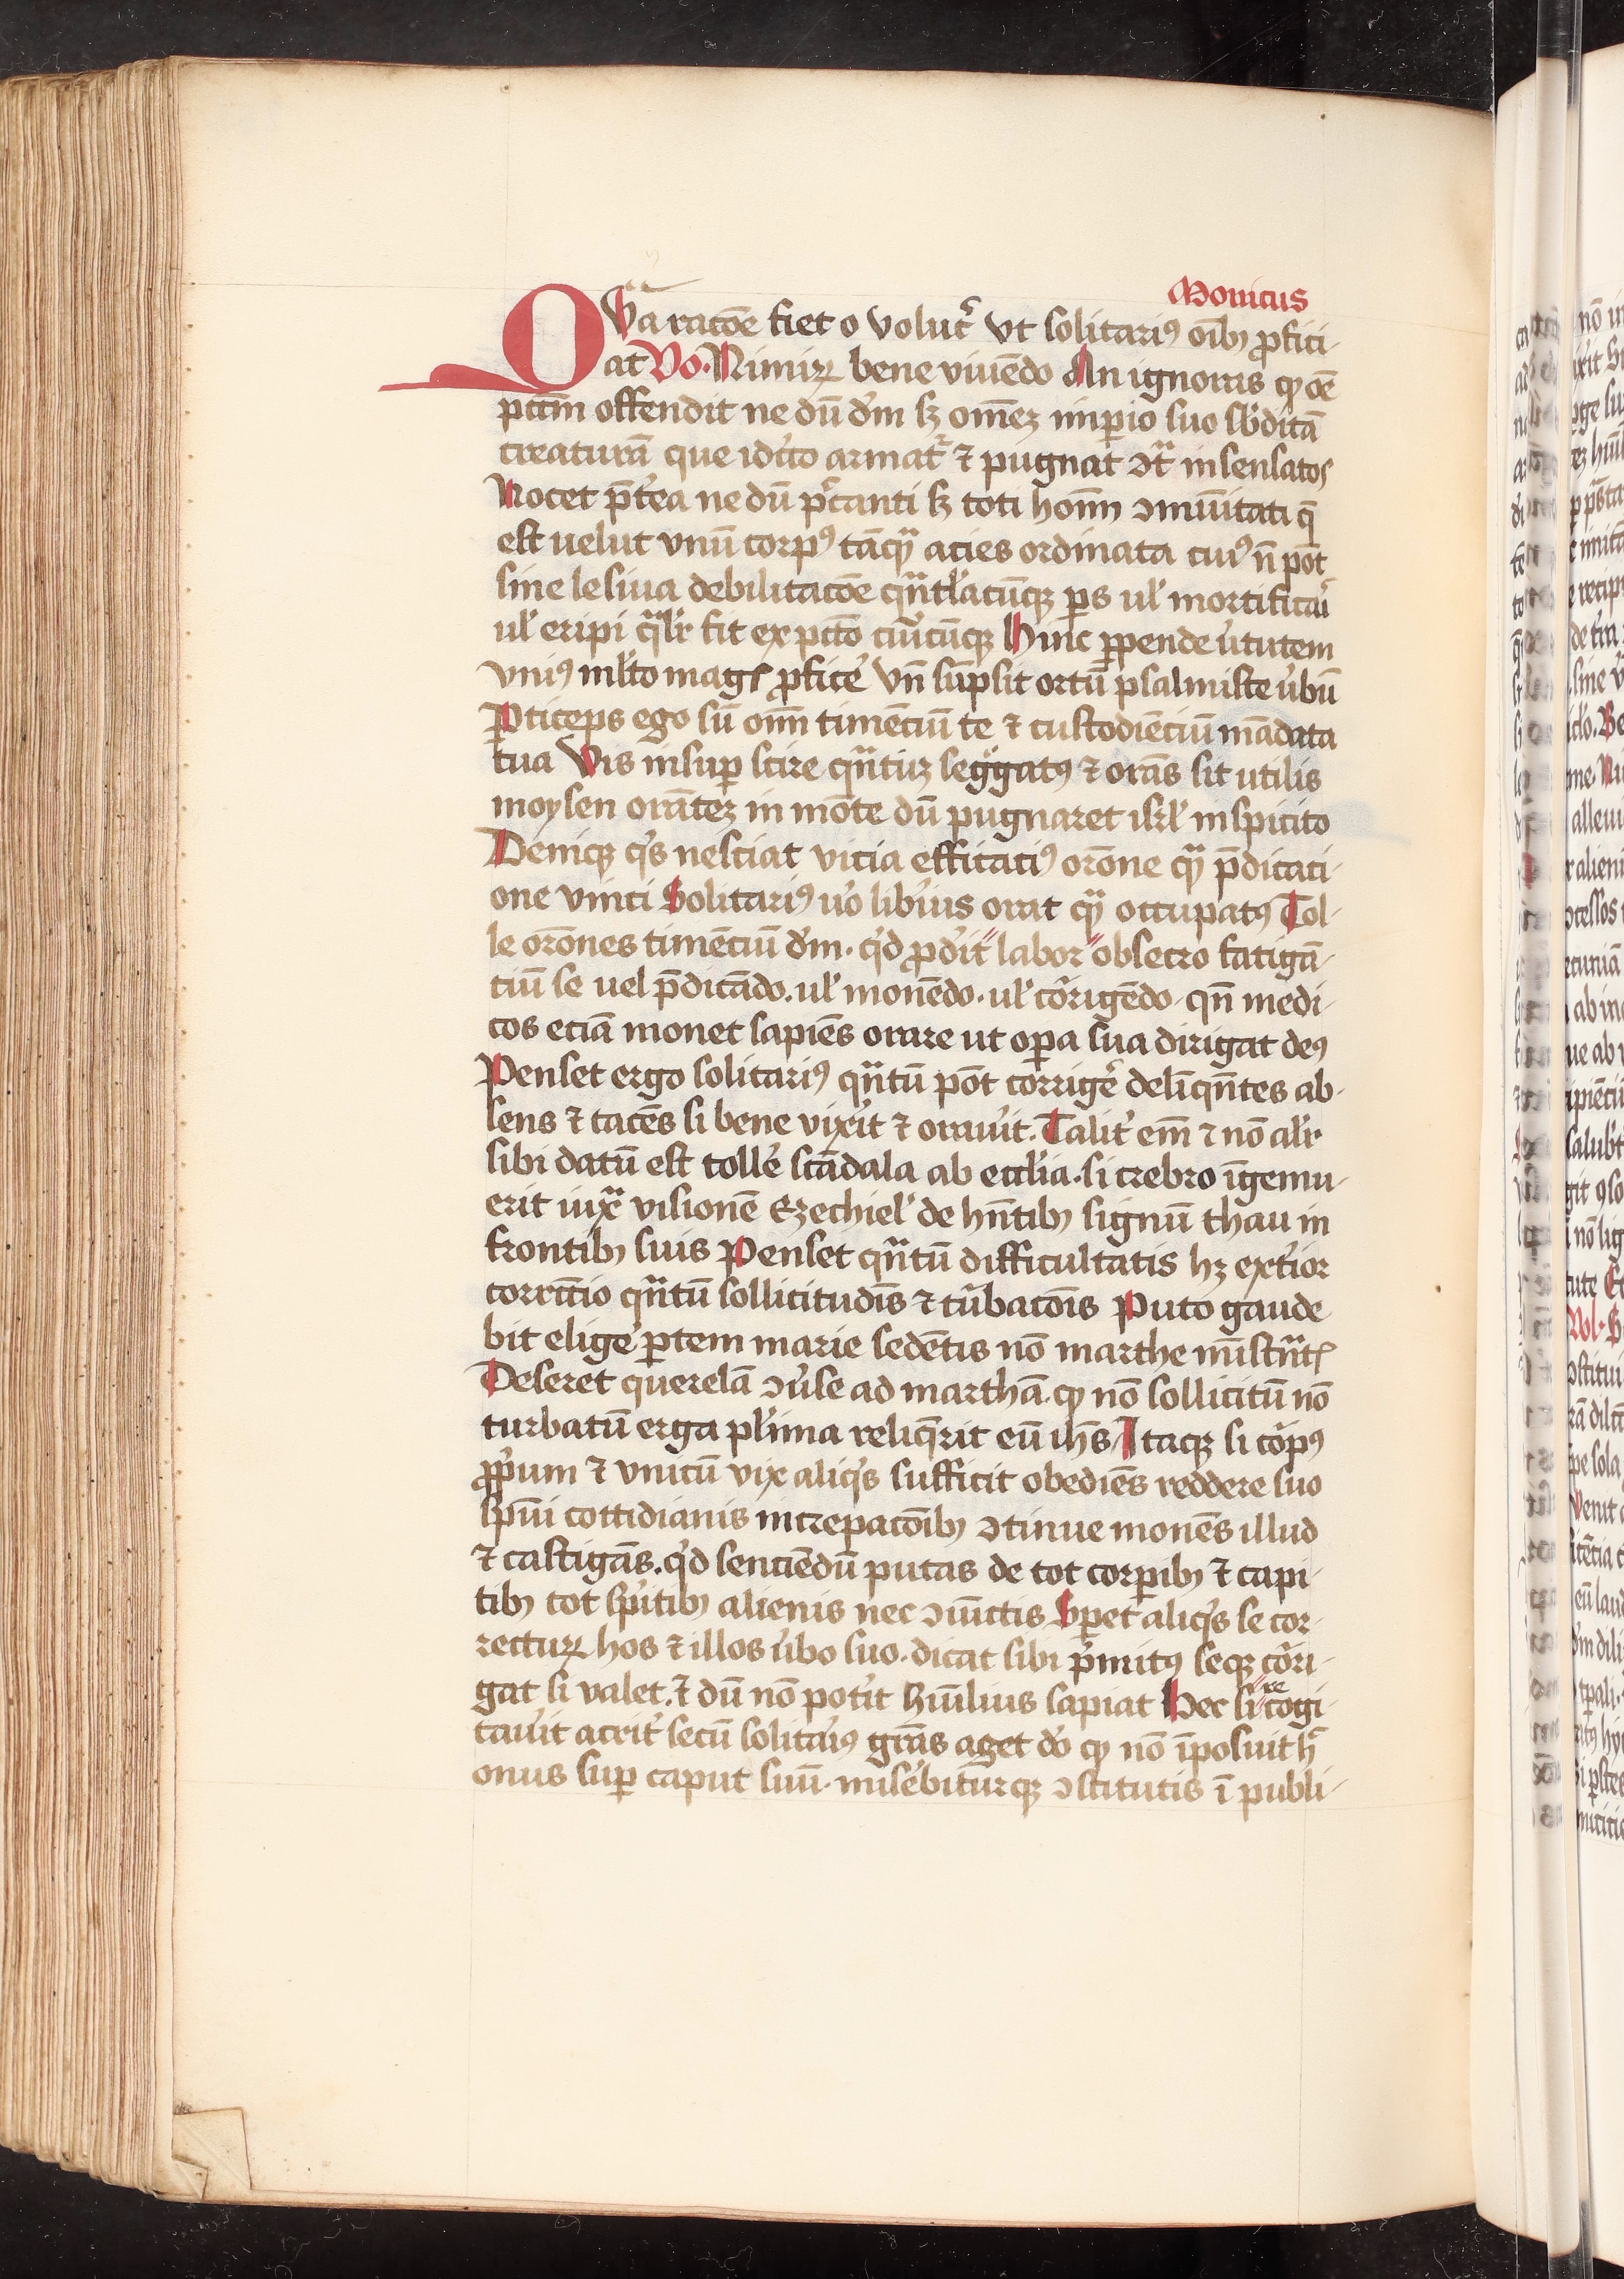 Monicus
QVa rac̄oe fiet o volūtꝰ vt solitariꝰ oībꝫ ꝓfici-
at Vo. Nimirꝝ bene viuēdo An ignoras ꝙ oē
pctm̄ offendit ne dū dm̄ sꝫ omeꝫ imꝑio suo sbditā
creaturā que idcirco armatr̄ ⁊ pugnat ↄtra insensatos
Nocet p̄terea ne dū peccanti sꝫ toti hom̄ ↄmunitati q̄
est uelut vnū corpꝰ tāqꝫ acies ordinata cuiꝰ n̄ pōt
sine lesiua debilitac̄oe qntl̄acūqꝫ ꝑs ul' mortificari
ul' eripi qual'r fit ex pctō cuiuscūqꝫ Hinc ꝑpende v'tutem
vniꝰ ml'to magis ꝓficere Vn̄ sūpsit ortū psalmiste v'bū
Ꝑticeps ego sū oīm timēciū te ⁊ custodiēciū mādata
tua Vis insuꝑ scire qntuꝫ seg̊gatꝰ ⁊ orās sit utilis
moysen orāteꝫ in mōte dū pugnaret isrl' inspicito
Deniqꝫ qis nesciat vicia efficaciꝰ orōne qꝫ p̄dicati-
one vinci Solitariꝰ u'o liberius orat qꝫ occupatꝰ Tol-
le orōnes timēciū dm̄. qid ꝓderit labor obsecro fatigā-
ciū se uel p̄dicādo. ul' monēdo. ul' corrigēdo. qn̄ medi-
cos eciā monet sapiēs orare ut oꝑa sua dirigat deꝰ
Penset ergo solitariꝰ qntū pōt corrigere delinqn̄tes ab-
sens ⁊ tacēs si bene vixerit ⁊ orauerit. Taliter em̄ ⁊ nō al'r
sibi datū est tollere scādala ab eccl'ia. si crebro īgemu-
erit iuxta visionē Ezechiel' de hn̄tibꝫ signū thau in
frontibꝫ suis Penset qntū difficultatis hꝫ exterior
correctio qntū sollicitudīs ⁊ turbacōis Puto gaude
bit eligere ꝑtem marie sedētis nō marthe mīstrantis
Deseret querelā ↄuerse ad marthā. ꝙ nō sollicitū nō
turbatū erga pl'ima reliqrit eū ihs̄ Itaqꝫ si corpꝰ
ꝓprium ⁊ vnicū vix aliqis sufficit obediēs reddere suo
spūi cottidianis increpacōibꝫ ↄtinue monēs illud
⁊ castigās. qid senciēdū putas de tot corꝑibꝫ ⁊ capi-
tibꝫ tot spiritibꝫ alienis nec ↄiūctis Speret aliqis se cor-
recturꝝ hos ⁊ illos v'bo suo. dicat sibi p̄mitus seqꝫ corri-
gat si valet. ⁊ dū nō poterit humilius sapiat Hec si recogi-
tauerit acriter secū solitariꝰ grās aget deo ꝙ nō īposuit h̄
onus suꝑ caput suū. miserebiturqꝫ ↄstitutis ī publi-